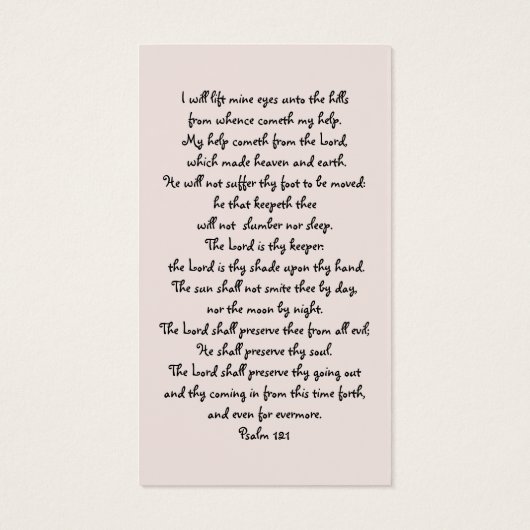 I will lift mine eyes unto the hills
from whence cometh my help.
My help cometh from the Lord,
which made heaven and earth.
He will not suffer thy foot to be moved:
he that keepeth thee
will not slumber nor sleep.
The Lord is thy keeper:
the Lord is thy shade upon thy hand.
The sun shall not smite thee by day,
nor the moon by night.
The Lord shall preserve thee from all evil;
He shall preserve thy soul.
The Lord shall preserve thy going out
and thy coming in from this time forth,
and even for evermore.
Psalm 121